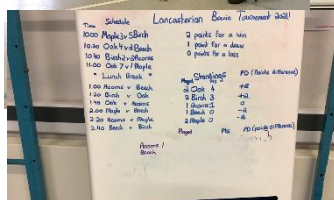 Lancastrian Bowls Tournament 2021!
Time Schedule
10:00 Maple 3 v 5 Birch
10.20 Oak 4 v 2 Beech
10.40 Birch 2 v 2 Acorns
11.00 Oak 7 v 1 Maple
* Lunch Break *
1.00 Acorns v Beech
1.20 Birch v Oak
1.40 Oak v Acorns
2.00 Maple v Beech
2.20 Acorns v Maple
2.40 Beech v Birch
2 points for a win
1 point for a draw
0 points for a loss
Standings
Played Pts PD (Points difference)
2 Oak 4 +8
2 Birch 3 +2
1 Acorns 1 0
1 Beech 0 -2
2 Maple 0 -8
Played Pts PD (points difference)
Acorns
Beech